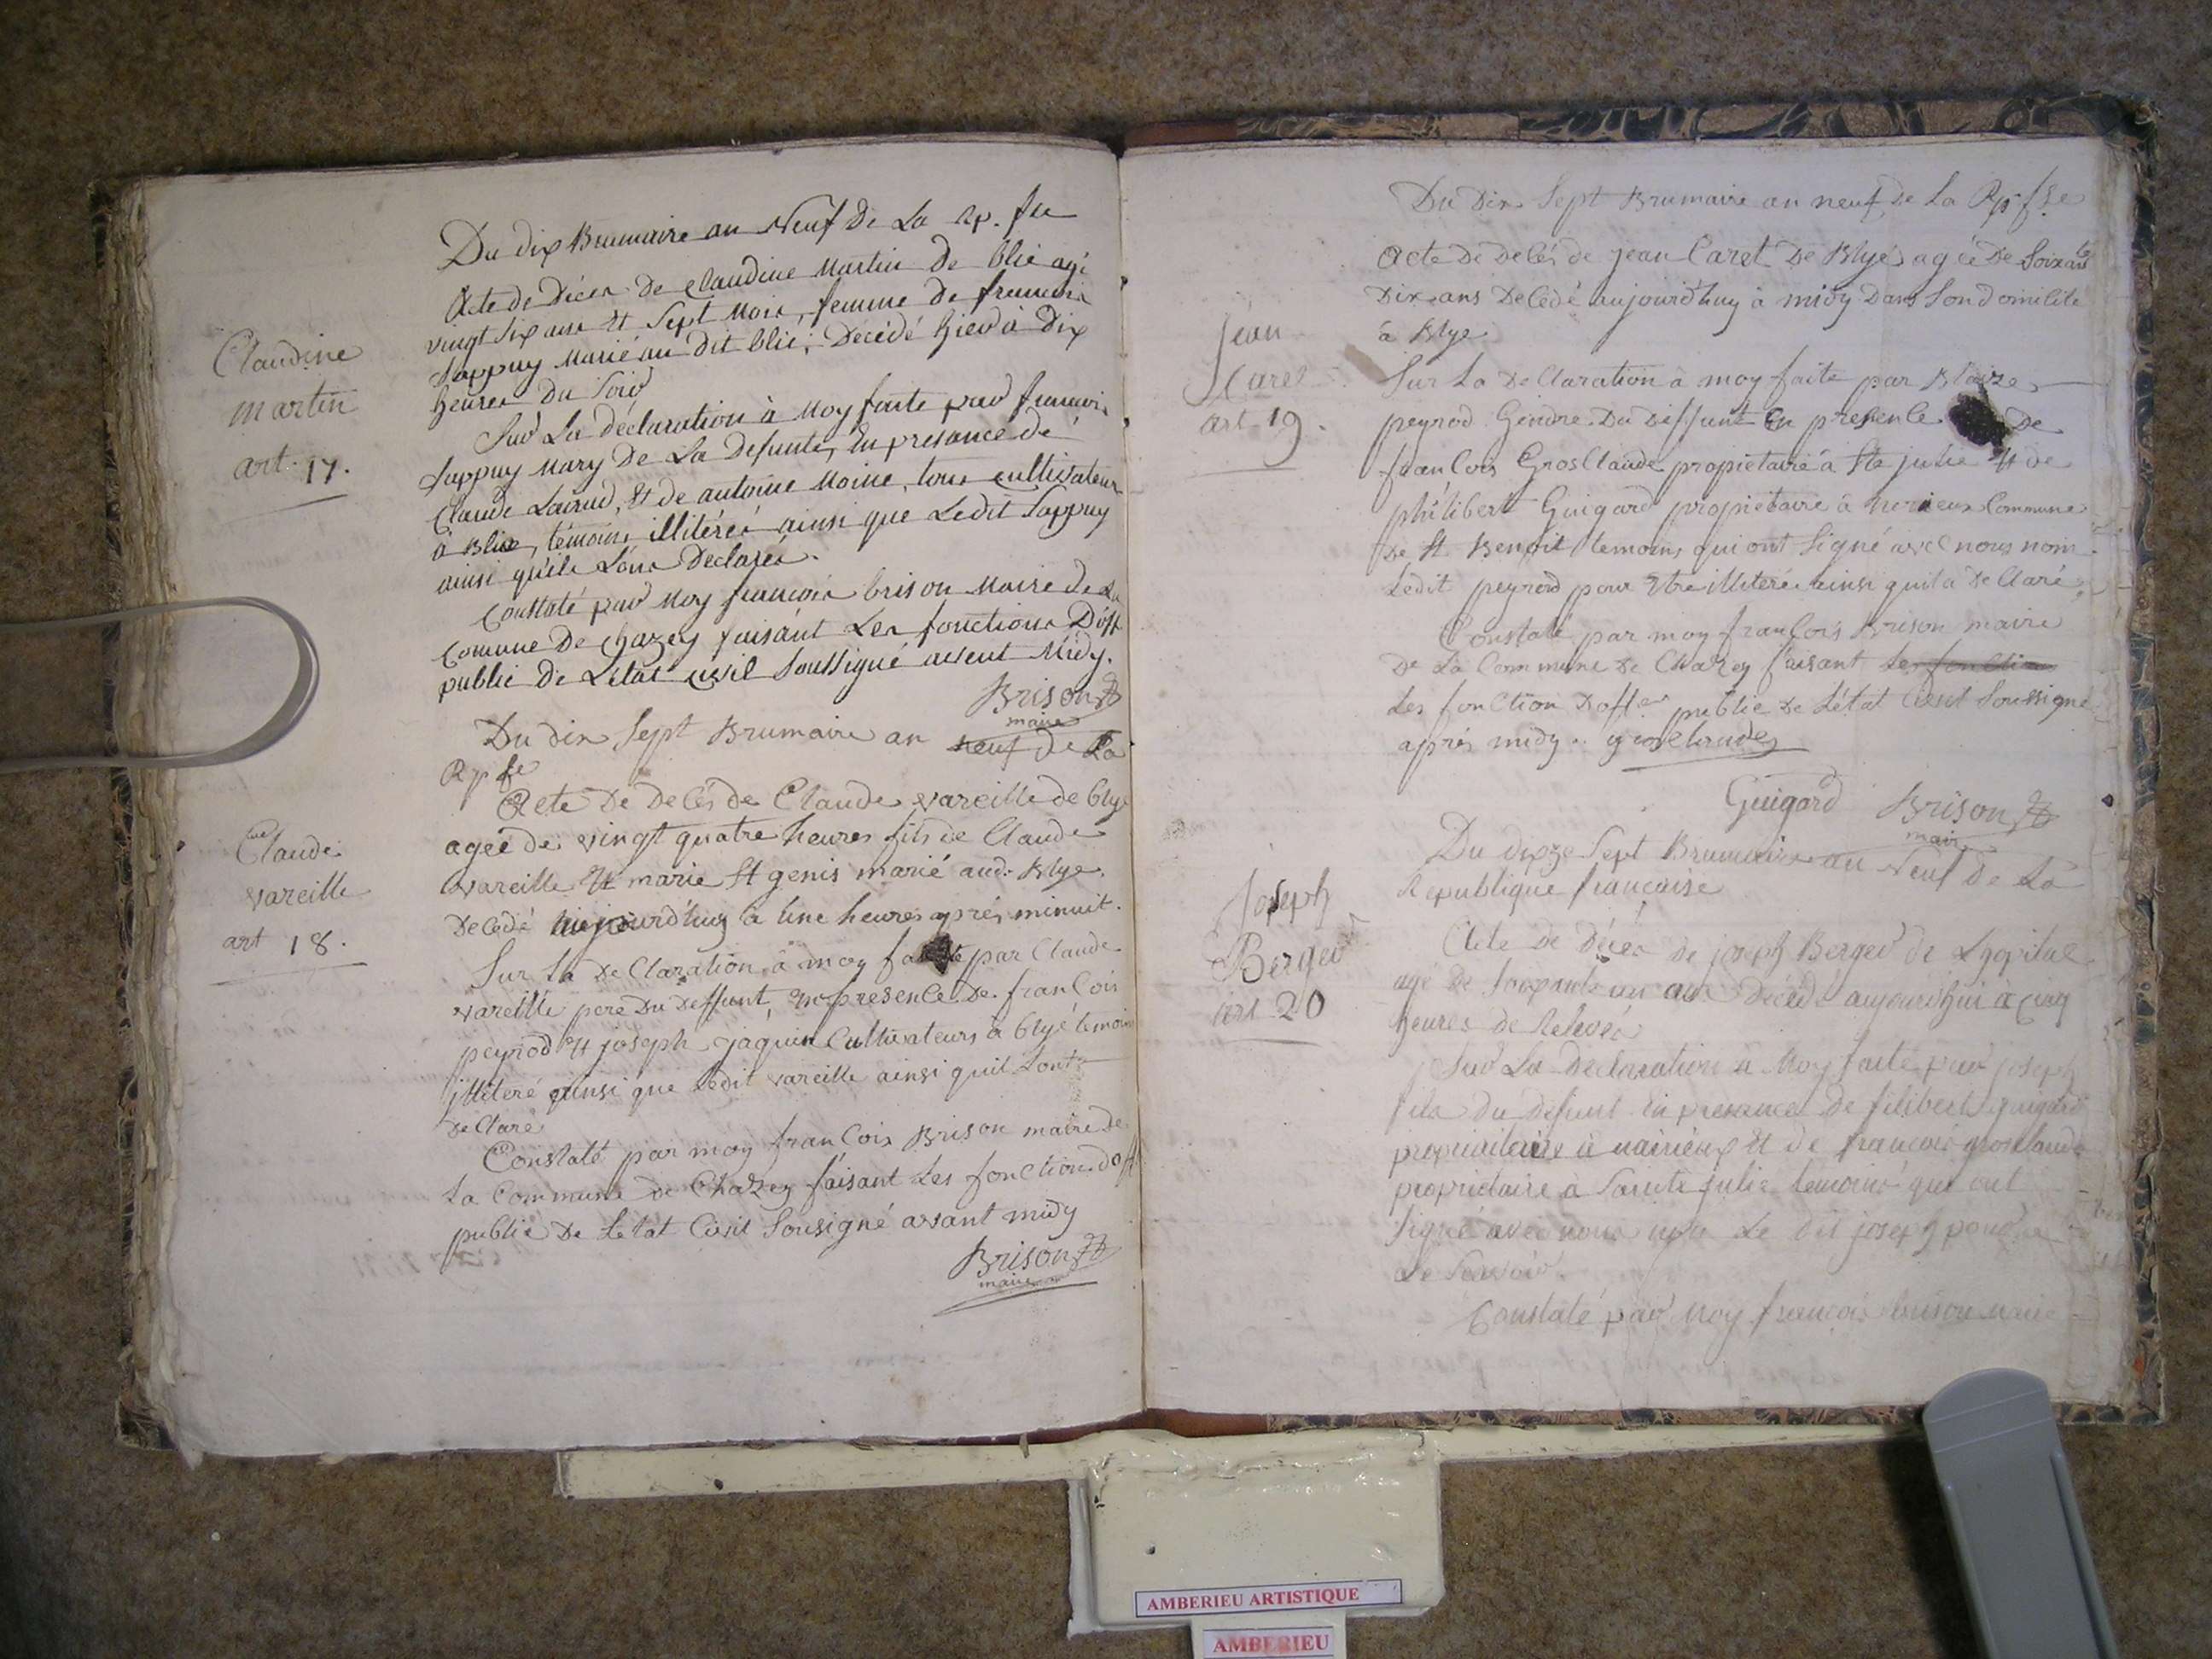 Du dix Brumaire an Neuf De La Rp. fse
Acte De Décer de Claudine Martin De blié agé
vingt six ans et sept Mois, femme de francois
Sappuy Marié au dit blié; Decédé hier à Dix
heures Du Soir
Claudine
martin
art. 17.
Sur La déclaration à Moy faite par francois
Sappuy Mary De La Defunte, En presance de
Claude Lairud, et de antoine Moine, tous cultivateur
à Blie, témoins illitéréé ainsi que Ledit Sappuy
ainsi qu'ils L'ons Déclarés.
Constaté par Moy francois brison Maire de La
Comune De Chazey faisant Les fonctions D'off
public De L'état civil Soussigné avent Midy.
Brison
maire
Du dix Sept Brumaire an neuf De La
Rp fse
Acte De Decés de Claude vareille de blye
ageé de vingt quatre heures fils de Claude
vareille et marie St genis marié aud. Blye
Decedé aujourd'huy a Une heures aprés minuit.
Claude
vareille
art 18.
Sur La Declaration a moy faite par Claude
vareille pere Du Deffunt, En presence De francois
peyrod et joseph jaquin Cultivateurs a blyé temoins
illiteré ainsi que Ledit vareille ainsi quil Lont
declaré
Constaté par moy francois Brison maire De
La Commune de Chazey faisant Les fonction doff
public De Letat Civil Sousigné avant midy
Brison
maire
Du Dix Sept Brumaire an neuf de La Rp fse
Acte De Decés de jean Caret De Blye ageé De Soixante
Dix ans Decedé aujourd'huy à midy Dans Son domicile
à Blye.
jean
Caret
art 19.
Sur La Declaration à moy faite par Blaize
peyrod Gendre Du Deffunt En presence De
francois Grosclaude propietaire à Ste julie et de
philibert Guigard propriétaire à nerieux Commune
De St Benoit temoins qui ont Signé avec nous nom
Ledit peyrod pour Etre illiteré ainsi quil a Declaré.
Constaté par moy francois Brison maire
De La Commune De Chazey faisant Les fonction
Les fonction Doffer public De L'état Civil Soussigné
aprés midy. grosclaude
Guigard Brison
maire
Du dixze Sept Brumaire an Neuf De La
Republique francaise
Joseph
Berger
art 20
Acte de Décer de joseph Berger de Lhopital
agé de Soixante un ans Décédé aujourdhui à cinq
heures de Relevée
Sur La Declaration a Moy faite par joseph
fils du defunt En presance De filibert guigard
propriaitaire à nairieux et de francois grosclaude
propriétaire a Sainte julie temoins qui ont
Signé avec nous non Le dit joseph pour ne
Le Savoir.
Constaté par Moy francois brison maire
AMBERIEU ARTISTIQUE
AMBERIEU